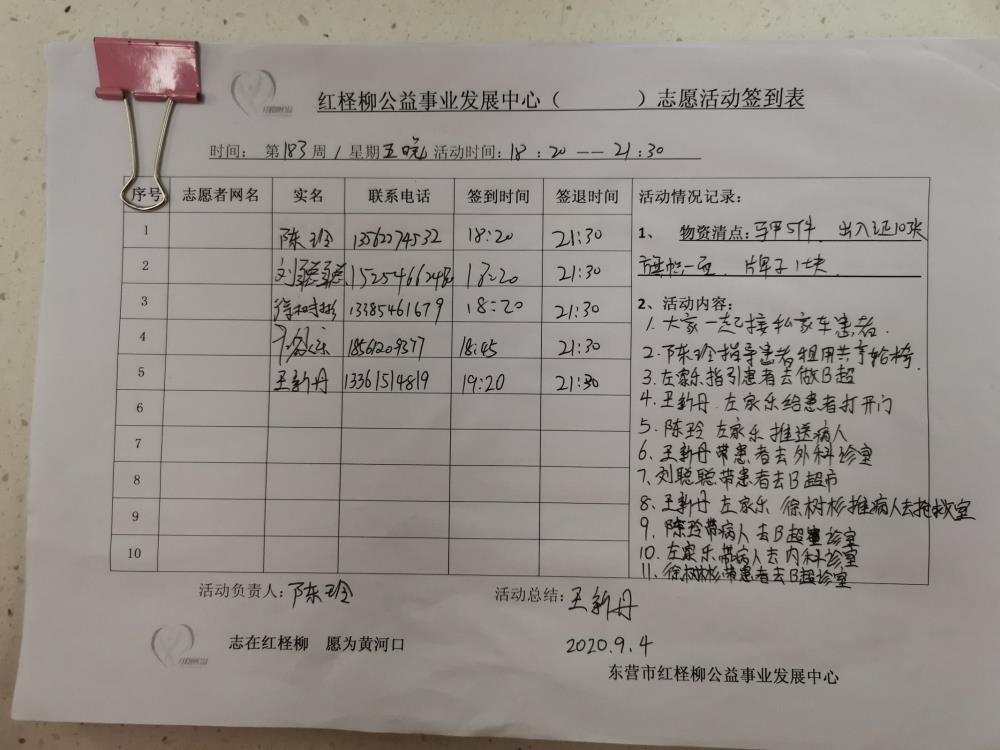 红柽柳公益事业发展中心（ ）志愿活动签到表
时间： 第183周/星期五晚 活动时间：18：20 — 21：30
序号 志愿者网名 实名 联系电话 签到时间 签退时间 活动情况记录：
1 陈玲 13562274532 18:20 21:30
2 刘聪聪 18:20 21:30
3 徐树彬 13385461679 18:20 21:30
4 18:45 21:30
5 王新丹 13361514819 19:20 21:30
6
7
8
9
10
1、 物资清点：马甲5件、出入证10张
旗帜一面、牌子1块.
2、活动内容：
1. 大家一起接私家车患者.
2. 陈玲指导患者租用共享轮椅.
3. 左家乐指引患者去做B超
4. 王新丹 左家乐给患者打开门
5. 陈玲 左家乐 推送病人
6. 王新丹带患者去外科诊室
7. 刘聪聪带患者去B超市
8. 王新丹 左家乐 徐树彬推病人去抢救室
9. 陈玲带病人去B超诊室
10. 左家乐带病人去内科诊室
11. 徐树彬带患者去B超诊室
活动负责人：陈玲 活动总结：王新丹
志在红柽柳 愿为黄河口
2020.9.4
东营市红柽柳公益事业发展中心